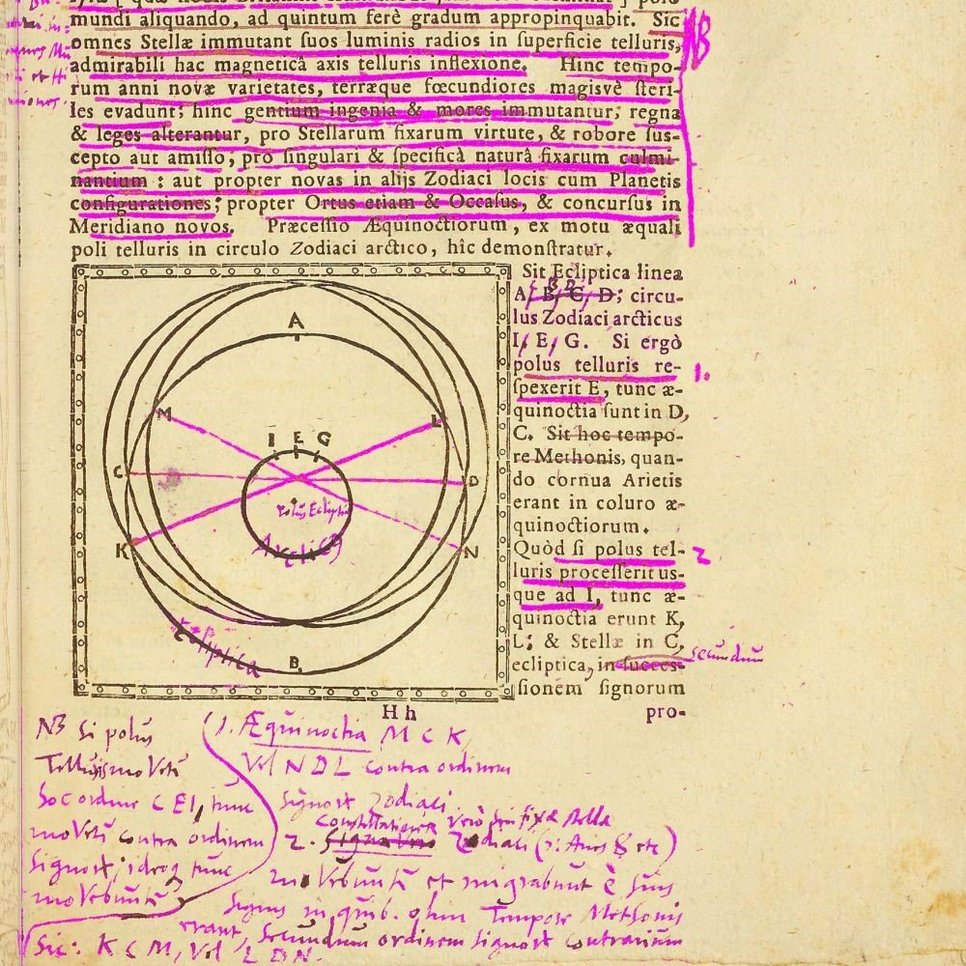 mundi aliquando, ad quintum ferè gradum appropinquabit. Sic
omnes Stellæ immutant ſuos luminis radios in ſuperficie telluris,
admirabili hac magneticâ axis telluris inflexione. Hinc tempo-
rum anni novæ varietates, terræque fœcundiores magisvè ſteri-
les evadunt; hinc gentium ingenia & mores immutantur; regna
& leges alterantur, pro Stellarum fixarum virtute, & robore ſus-
cepto aut amiſſo; pro ſingulari & ſpecificâ naturâ fixarum culmi-
nantium : aut propter novas in alijs Zodiaci locis cum Planetis
configurationes; propter Ortus etiam & Occaſus, & concurſus in
Meridiano novos. Præceſſio Æquinoctiorum, ex motu æquali
poli telluris in circulo Zodiaci arctico, hîc demonſtratur.
NB
Sit Ecliptica linea
A, B, C, D; circu-
lus Zodiaci arcticus
I, E, G. Si ergò
polus telluris re-
ſpexerit E, tunc æ-
quinoctia ſunt in D,
C. Sit hoc tempo-
re Methonis, quan-
do cornua Arietis
erant in coluro æ-
quinoctiorum.
Quòd ſi polus tel-
luris proceſſerit us-
que ad I, tunc æ-
quinoctia erunt K,
L; & Stellæ in C,
ecliptica, in ſucceſ-
ſionem ſignorum
1.
2
secundum
A
M
L
I E G
C
D
K
N
B
Polus Ecliptice
Ecliptica
Hh
pro-
NB Si polus
Telluris moVetur
hoc ordine C E I, tunc
moVetur contra ordinem
Signor; ideoq tunc
moVebunt
Sic: K C M, Vel L D N.
1. Æquinoctia M C K
Vel N D L contra ordinem
Signor Zodiaci
Constellationes Verò seu fixæ stellæ
2. Signa Vero Zodiaci
moVebunt et migrabunt è suis
Signis in quib. olim Tempore Methonis
erant, Secundum ordinem Signor contrarium